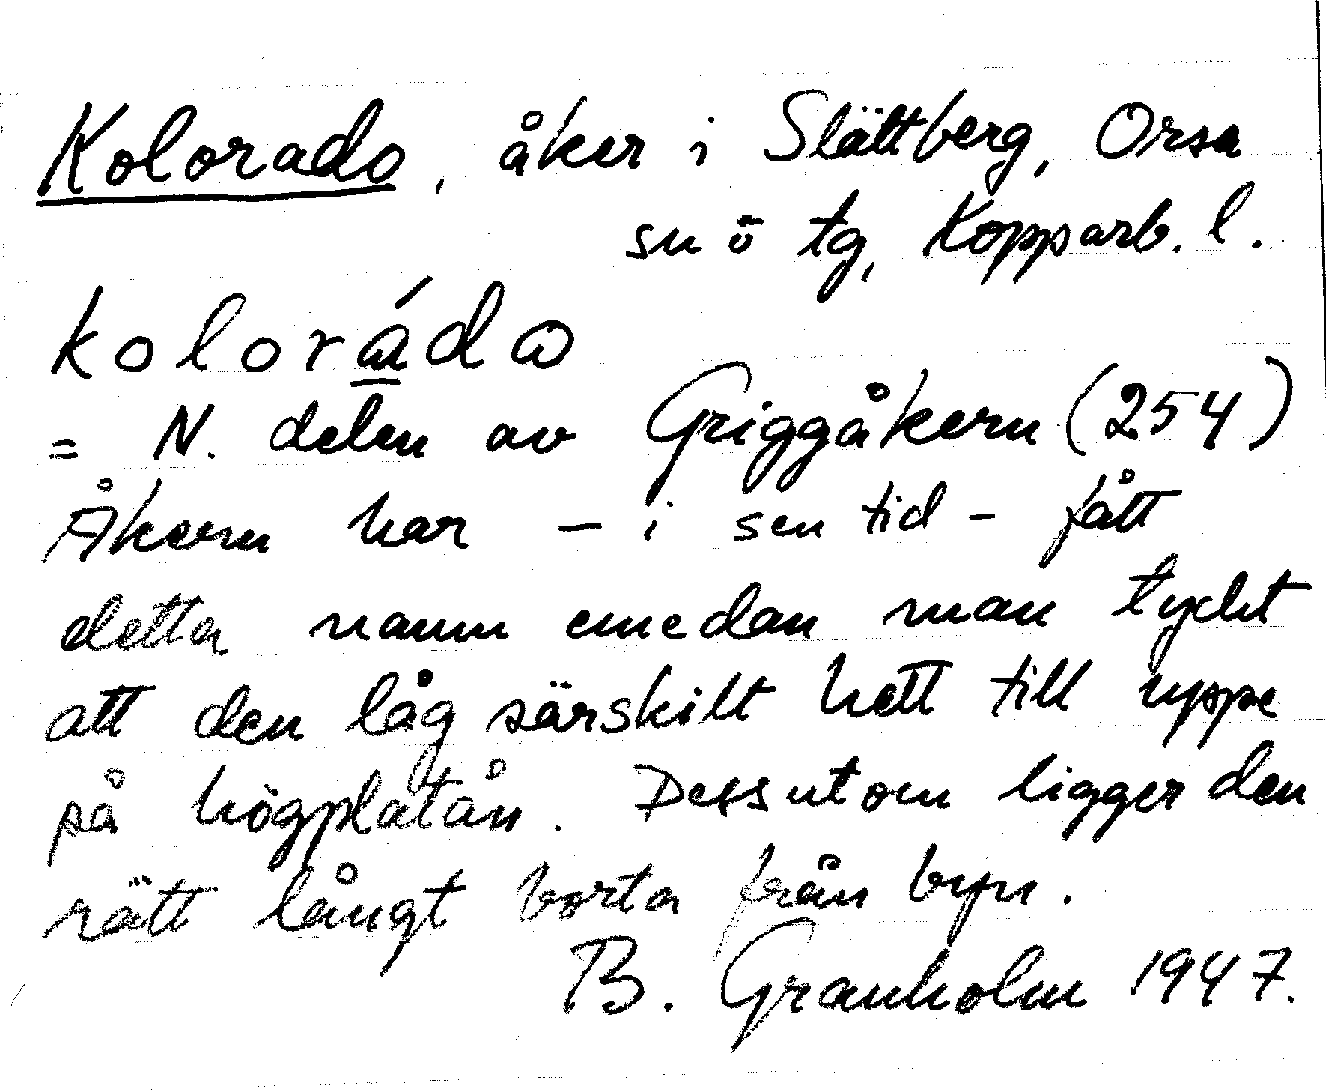 Kolorado, åker i Slättberg, Orsa
sn ö tg, Kopparb. l.
koloráda
= N. delen av Griggåkern (254)
Åkern har – i sen tid – fått
detta namn emedan man tyckt
att den låg särskilt hett till uppe
på högplatån. Dessutom ligger den
rätt långt borta från byn.
B. Granholm 1947.